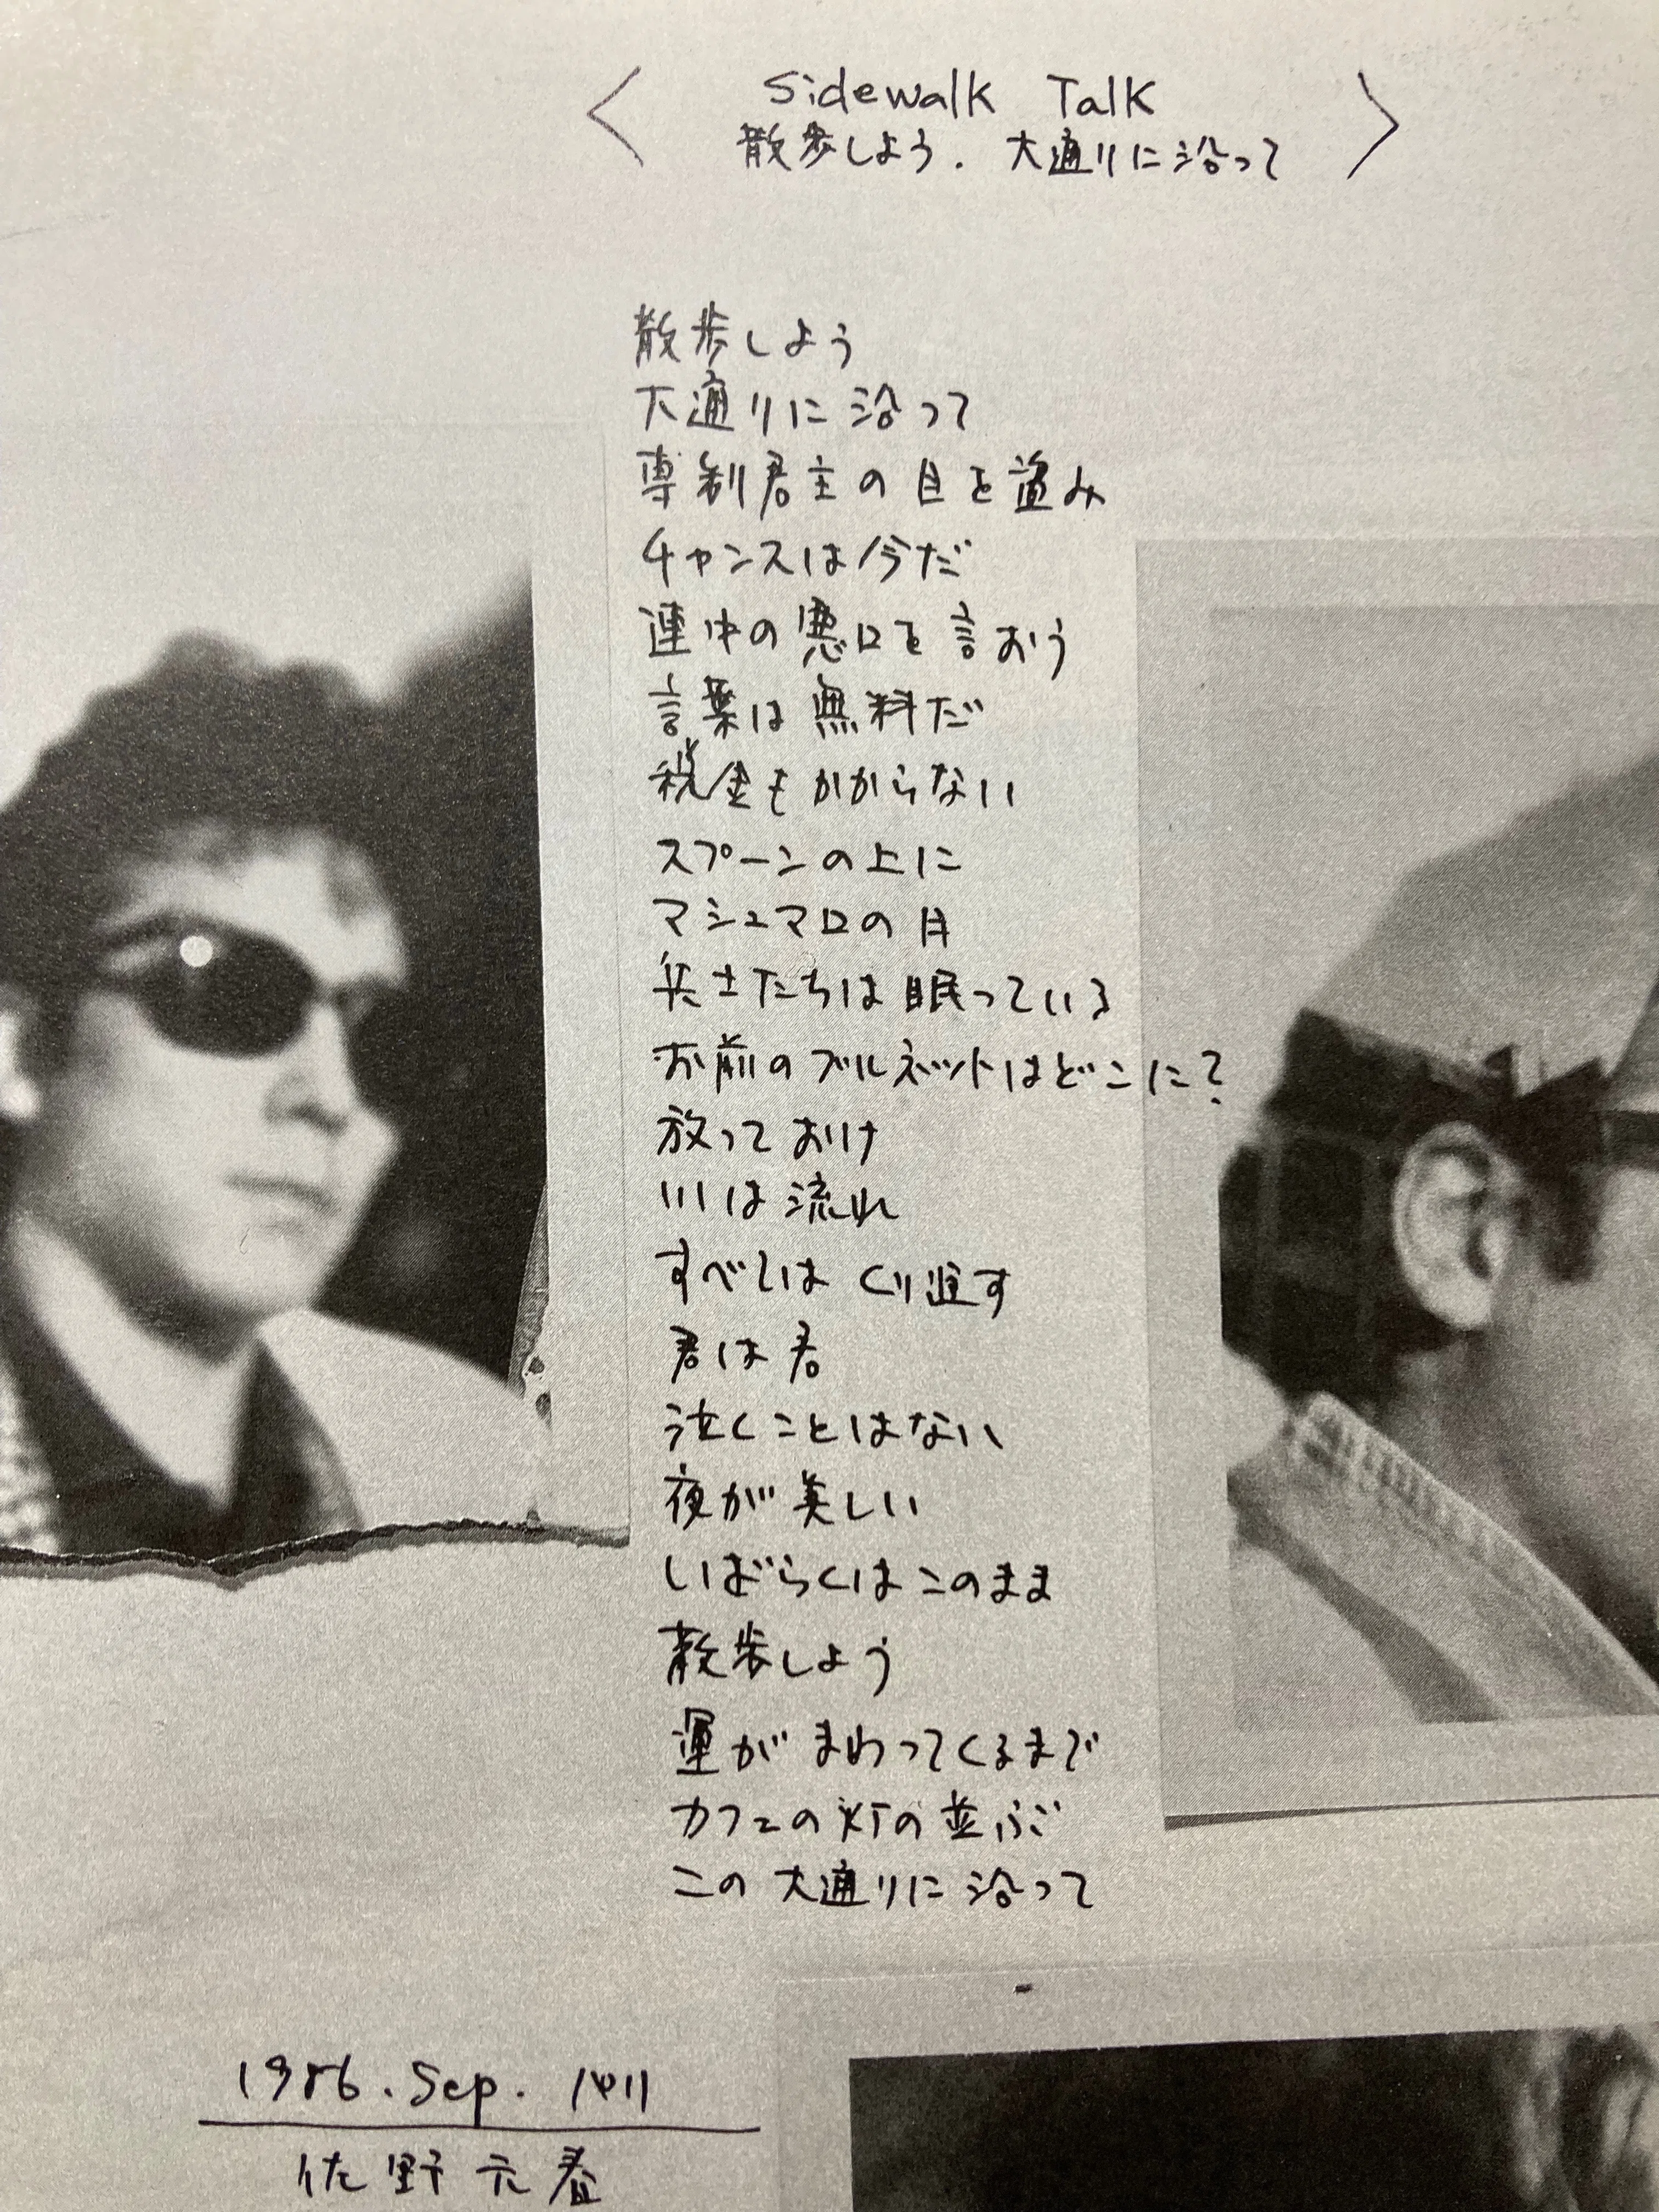 Sidewalk Talk
散歩しよう. 大通りに沿って
散歩しよう
大通りに沿って
専制君主の目を盗み
チャンスは今だ
連中の悪口を言おう
言葉は無料だ
税金もかからない
スプーンの上に
マシュマロの月
兵士たちは眠っている
お前のブルネットはどこに?
放っておけ
川は流れ
すべてはくり返す
君は君
泣くことはない
夜が美しい
しばらくはこのまま
散歩しよう
運がまわってくるまで
カフェの灯の並ぶ
この大通りに沿って
1986. Sep.
佐野元春